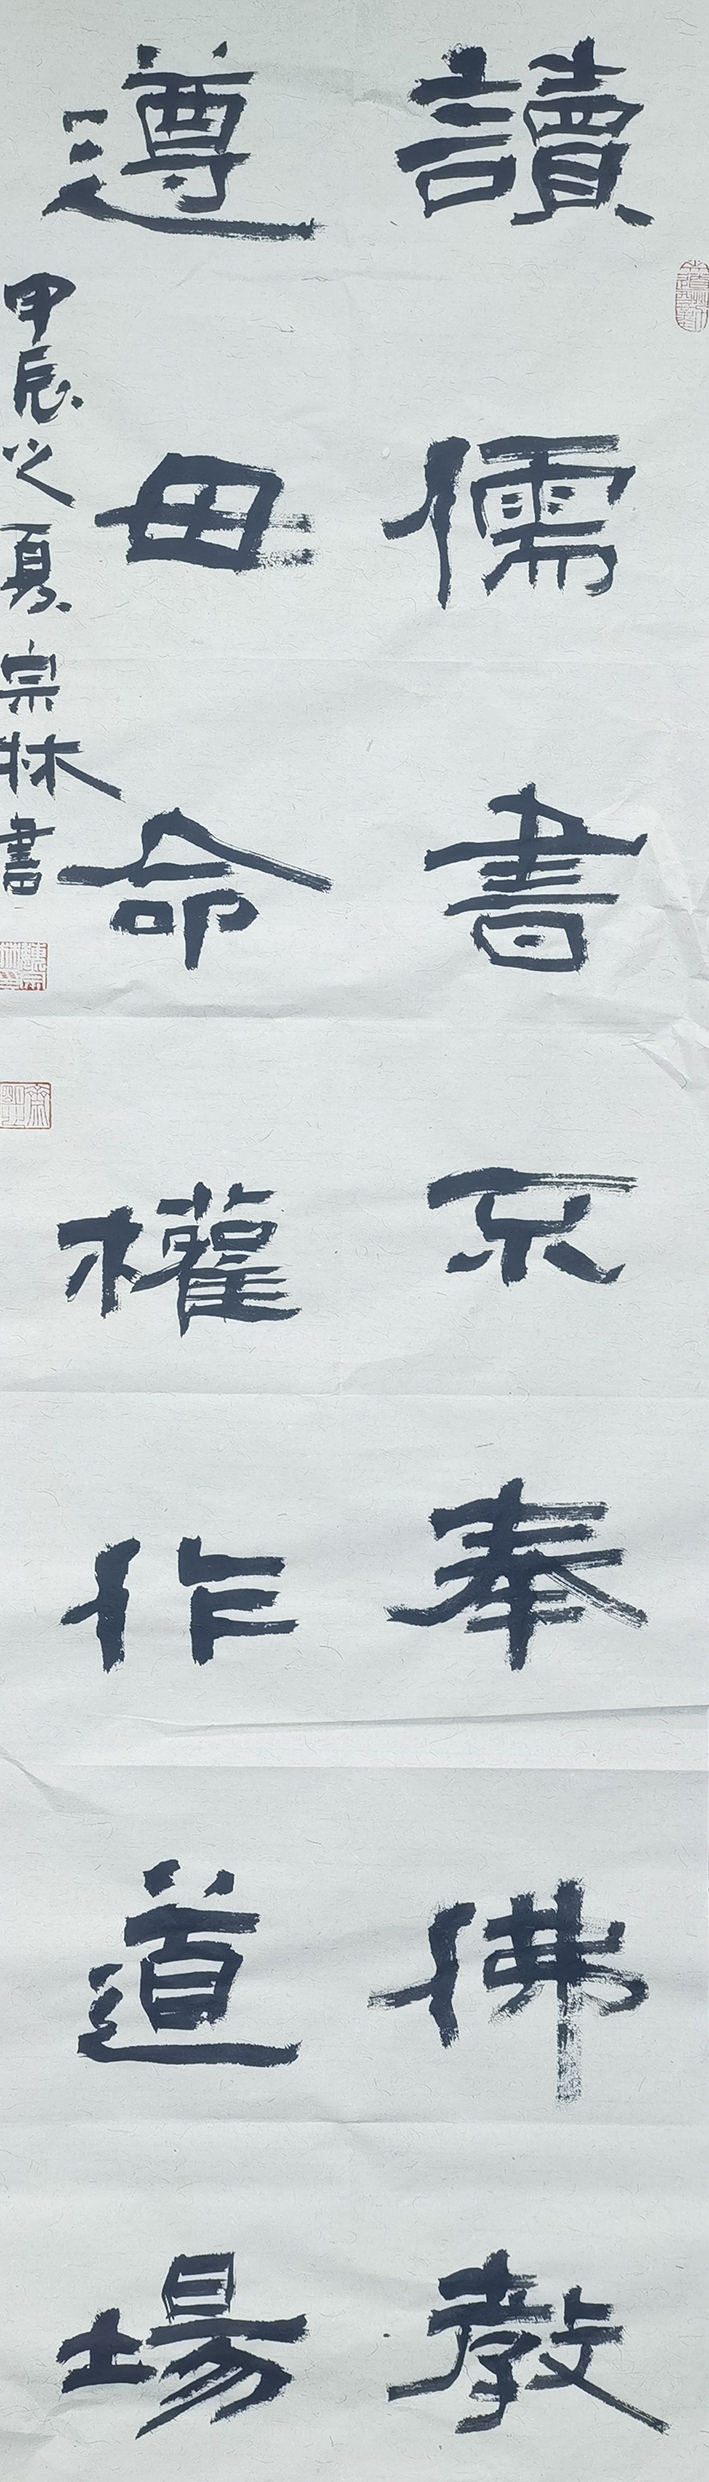 讀儒書不奉佛教
遵母命權作道場
甲辰之夏宗林書